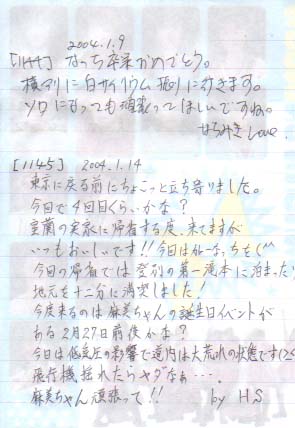 2004.1.9
[1144] なっち卒業おめでとう。
横アリに白サイリウム振りに行きます。
ソロになっても頑張ってほしいですね。
Love
[1145] 2004.1.14
東京に戻る前にちょこっと立ち寄りました。
今日で4回目くらいかな？
室蘭の実家に帰省する度、来てますが
いつもおいしいです!! 今日はカレーなっちを(^^
今回の帰省では登別の第一滝本に泊まった!
地元を十二分に満喫しました!
今度来るのは麻美ちゃんの誕生日イベントが
ある2月27日前後かな？
今日は低気圧の影響で道内は大荒れの状態です
飛行機揺れたらヤダなぁ…。
麻美ちゃん頑張って!! by H.S